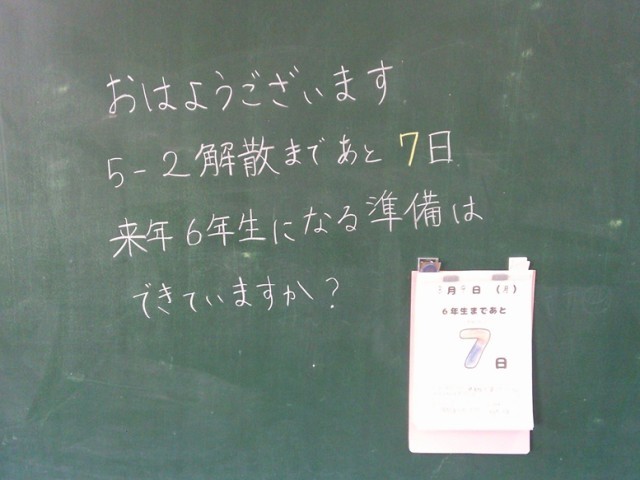 おはようございます
5-2解散まであと7日
来年6年生になる準備は
できていますか?
月 日( )
6年生まであと
7日